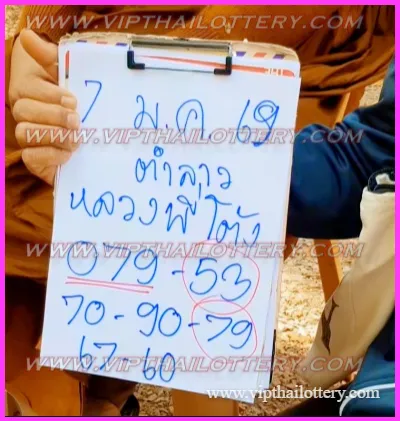 WWW.VIPTHAILOTTERY.COM
7 ม.ค 69
WWW.VIPTHAILOTTERY.COM
ตำลาว
หลวงพี่โต้ง
WWW.VIPTHAILOTTERY.COM
079-53
70-90-79
WWW.VIPTHAILOTTERY.COM
67-60
www.vipthailottery.com